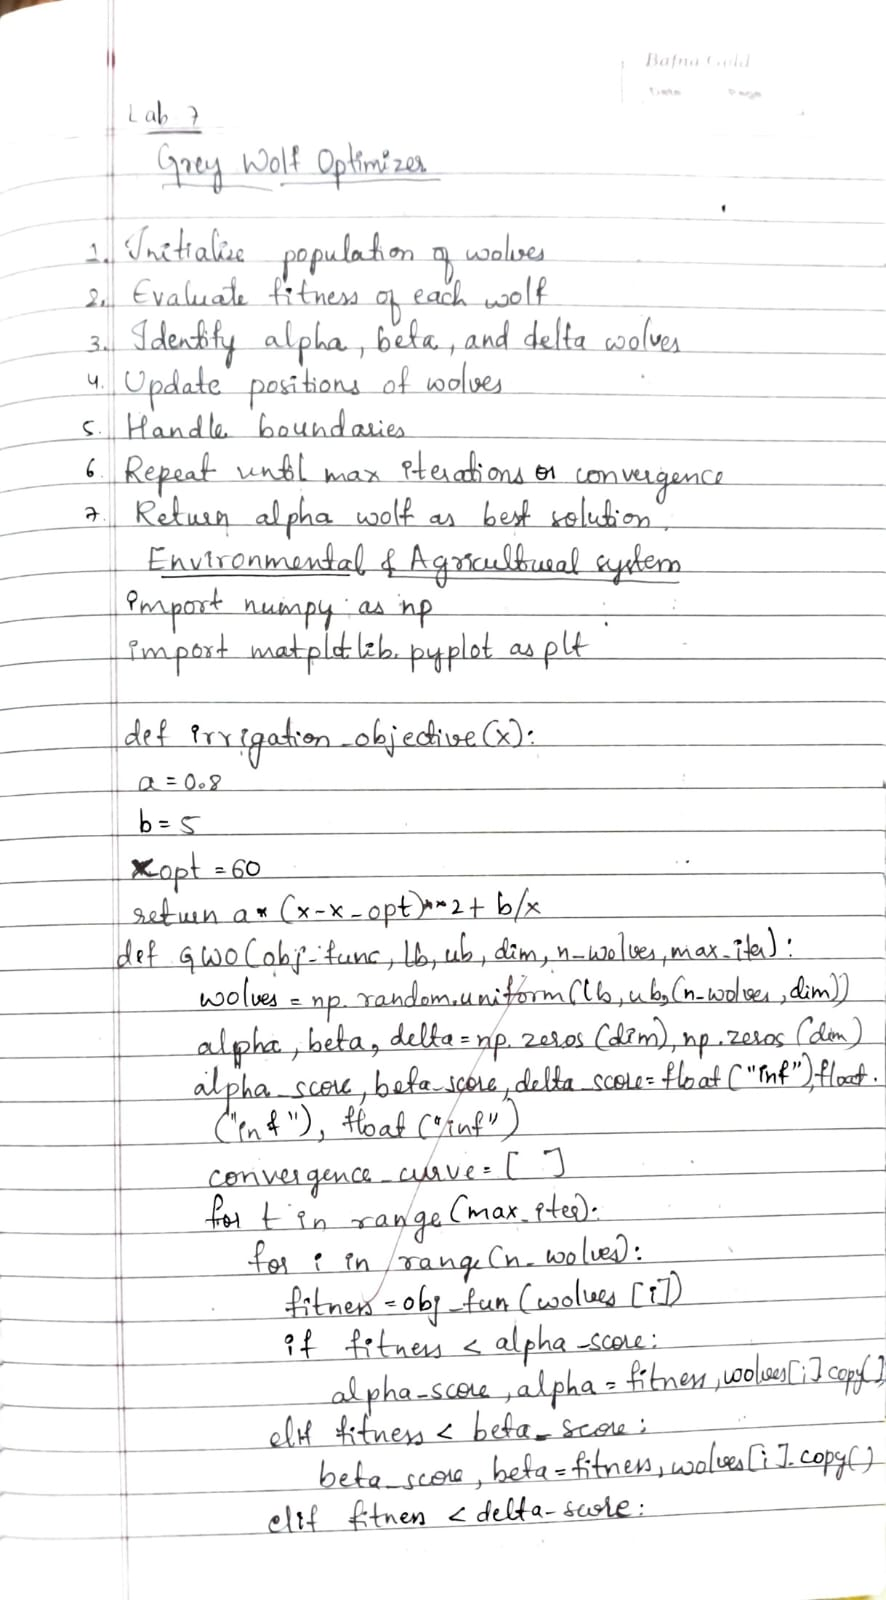 Bafna Gold
Date Page
Lab 7
Grey Wolf Optimizer
1. Initialise population of wolves
2. Evaluate fitness of each wolf
3. Identify alpha, beta, and delta wolves
4. Update positions of wolves
5. Handle boundaries
6. Repeat until max iterations or convergence
7. Return alpha wolf as best solution.
Environmental & Agricultural system
import numpy as np
import matplotlib.pyplot as plt
def irrigation_objective(x):
a = 0.8
b = 5
x opt = 60
return a * (x-x-opt)**2 + b/x
def GWO(obj-func, lb, ub, dim, n-wolves, max-iter):
wolves = np.random.uniform(lb, ub, (n-wolves, dim))
alpha, beta, delta = np.zeros(dim), np.zeros(dim)
alpha_score, beta-score, delta_score = float("inf"), float.
("inf"), float("inf")
convergence_curve = [ ]
for t in range(max_iter):
for i in range(n-wolves):
fitness = obj-fun(wolves[i])
if fitness < alpha-score:
alpha-score, alpha = fitness, wolves[i].copy()
elif fitness < beta_score:
beta_score, beta = fitness, wolves[i].copy()
elif fitness < delta-score: